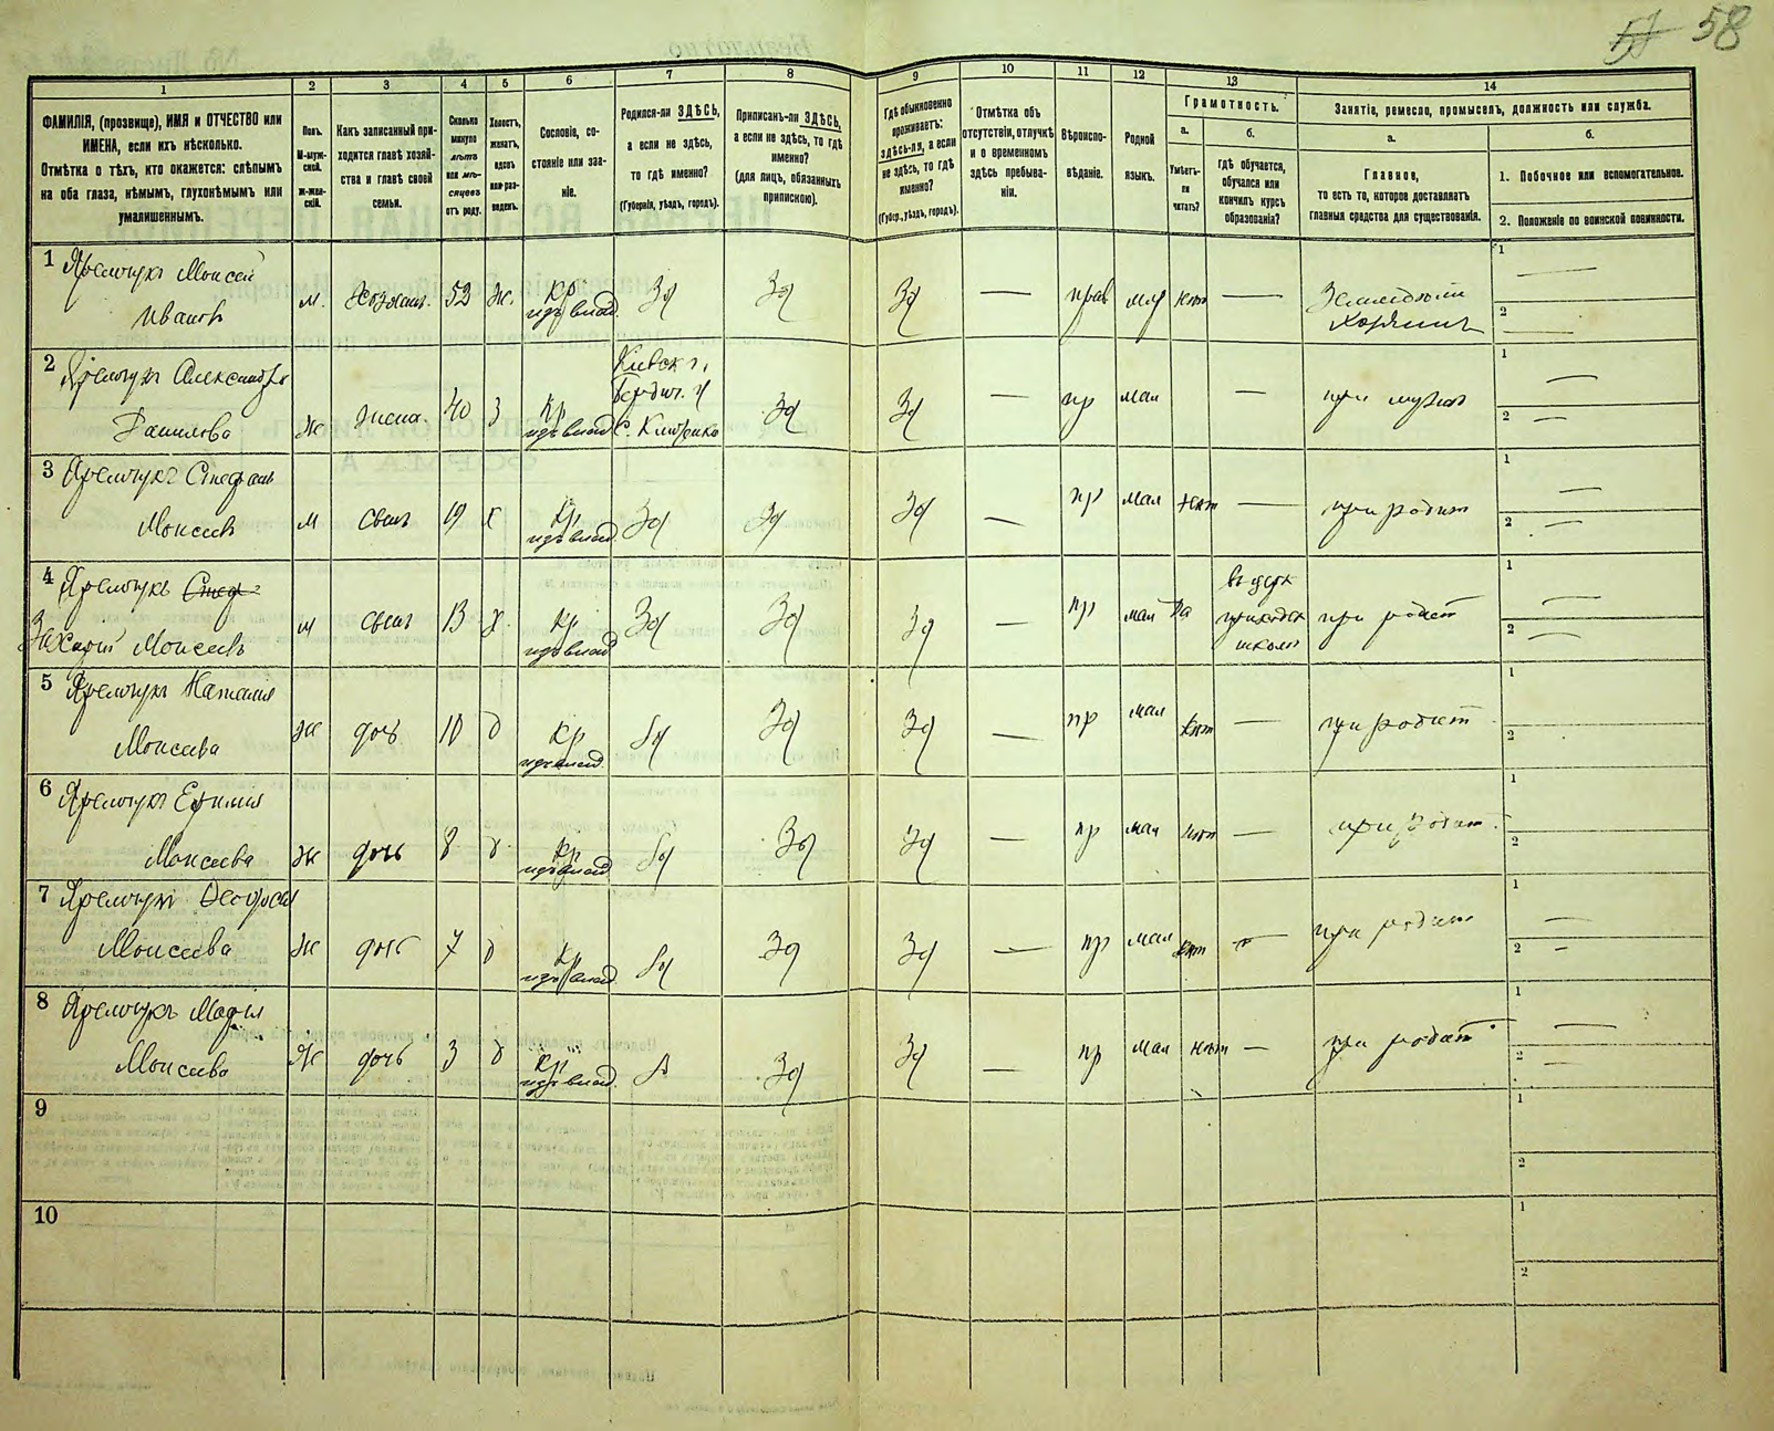 57 58
1 2 3 4 5 6 7 8 9 10 11 12 13 14
ФАМИЛІЯ, (прозвище), ИМЯ и ОТЧЕСТВО или
ИМЕНА, если ихъ нѣсколько.
Отмѣтка о тѣхъ, кто окажется: слѣпымъ
на оба глаза, нѣмымъ, глухонѣмымъ или
умалишеннымъ.
Полъ.
М-муж-
ской.
Ж-жен-
скій.
Какъ записанный при-
ходится главѣ хозяй-
ства и главѣ своей
семьи.
Сколько
минуло
лѣтъ
или мѣ-
сяцевъ
отъ роду.
Холостъ,
женатъ,
вдовъ
или раз-
веденъ.
Сословіе, со-
стояніе или зва-
ніе.
Родился-ли ЗДѢСЬ,
а если не здѣсь,
то гдѣ именно?
(Губернія, уѣздъ, городъ).
Приписанъ-ли ЗДѢСЬ,
а если не здѣсь, то гдѣ
именно?
(для лицъ, обязанныхъ
припискою).
Гдѣ обыкновенно
проживаетъ:
здѣсь-ли, а если
не здѣсь, то гдѣ
именно?
(Губер., уѣздъ, городъ).
Отмѣтка объ
отсутствіи, отлучкѣ
и о временномъ
здѣсь пребыва-
ніи.
Вѣроиспо-
вѣданіе.
Родной
языкъ.
Грамотность.
а.
Умѣетъ-
ли
читать?
б.
Гдѣ обучается,
обучался или
кончилъ курсъ
образованія?
Занятіе, ремесло, промыселъ, должность или служба.
а.
Главное,
то есть то, которое доставляетъ
главныя средства для существованія.
б.
1. Побочное или вспомогательное.
2. Положеніе по воинской повинности.
1 Яремчукъ Моисей
Ивановъ
м. Хозяин. 52 ж. Кр
изъ влад. Зд Зд Зд — прав мал нѣт —
1
2
2 Яремчукъ Александра
Данилова
ж жена. 40 З Кр
изъ влад
Киевск г.
Бердич. у
С. Зд Зд — пр мал — при мужѣ
1
2
3 Яремчукъ Стефанъ
Моисеевъ
м сынъ 19 х Кр
изъ влад. Зд Зд Зд — пр мал нѣт — при родит
1
2
4 Яремчукъ Стеф
Захарій Моисеевъ
м сынъ 13 х. Кр
изъ влад Зд Зд Зд — пр мал да
школѣ при родит
1
2
5 Яремчукъ Наталия
Моисеева
ж дочь 10 д Кр
изъ влад. Зд Зд Зд — пр мал нѣт — при родит
1
2
6 Яремчукъ Ефимия
Моисеева
ж дочь 8 д Кр
изъ влад Зд Зд Зд — пр мал нѣт — при родит.
1
2
7 Яремчукъ
Моисеева
ж дочь 7 д Кр
изъ влад. Зд Зд Зд — пр мал нѣт — при родит
1
2
8 Яремчукъ Мария
Моисеева
ж дочь 3 д Кр
изъ влад. Зд Зд — пр мал нѣт — при родит
1
2
9
1
2
10
1
2